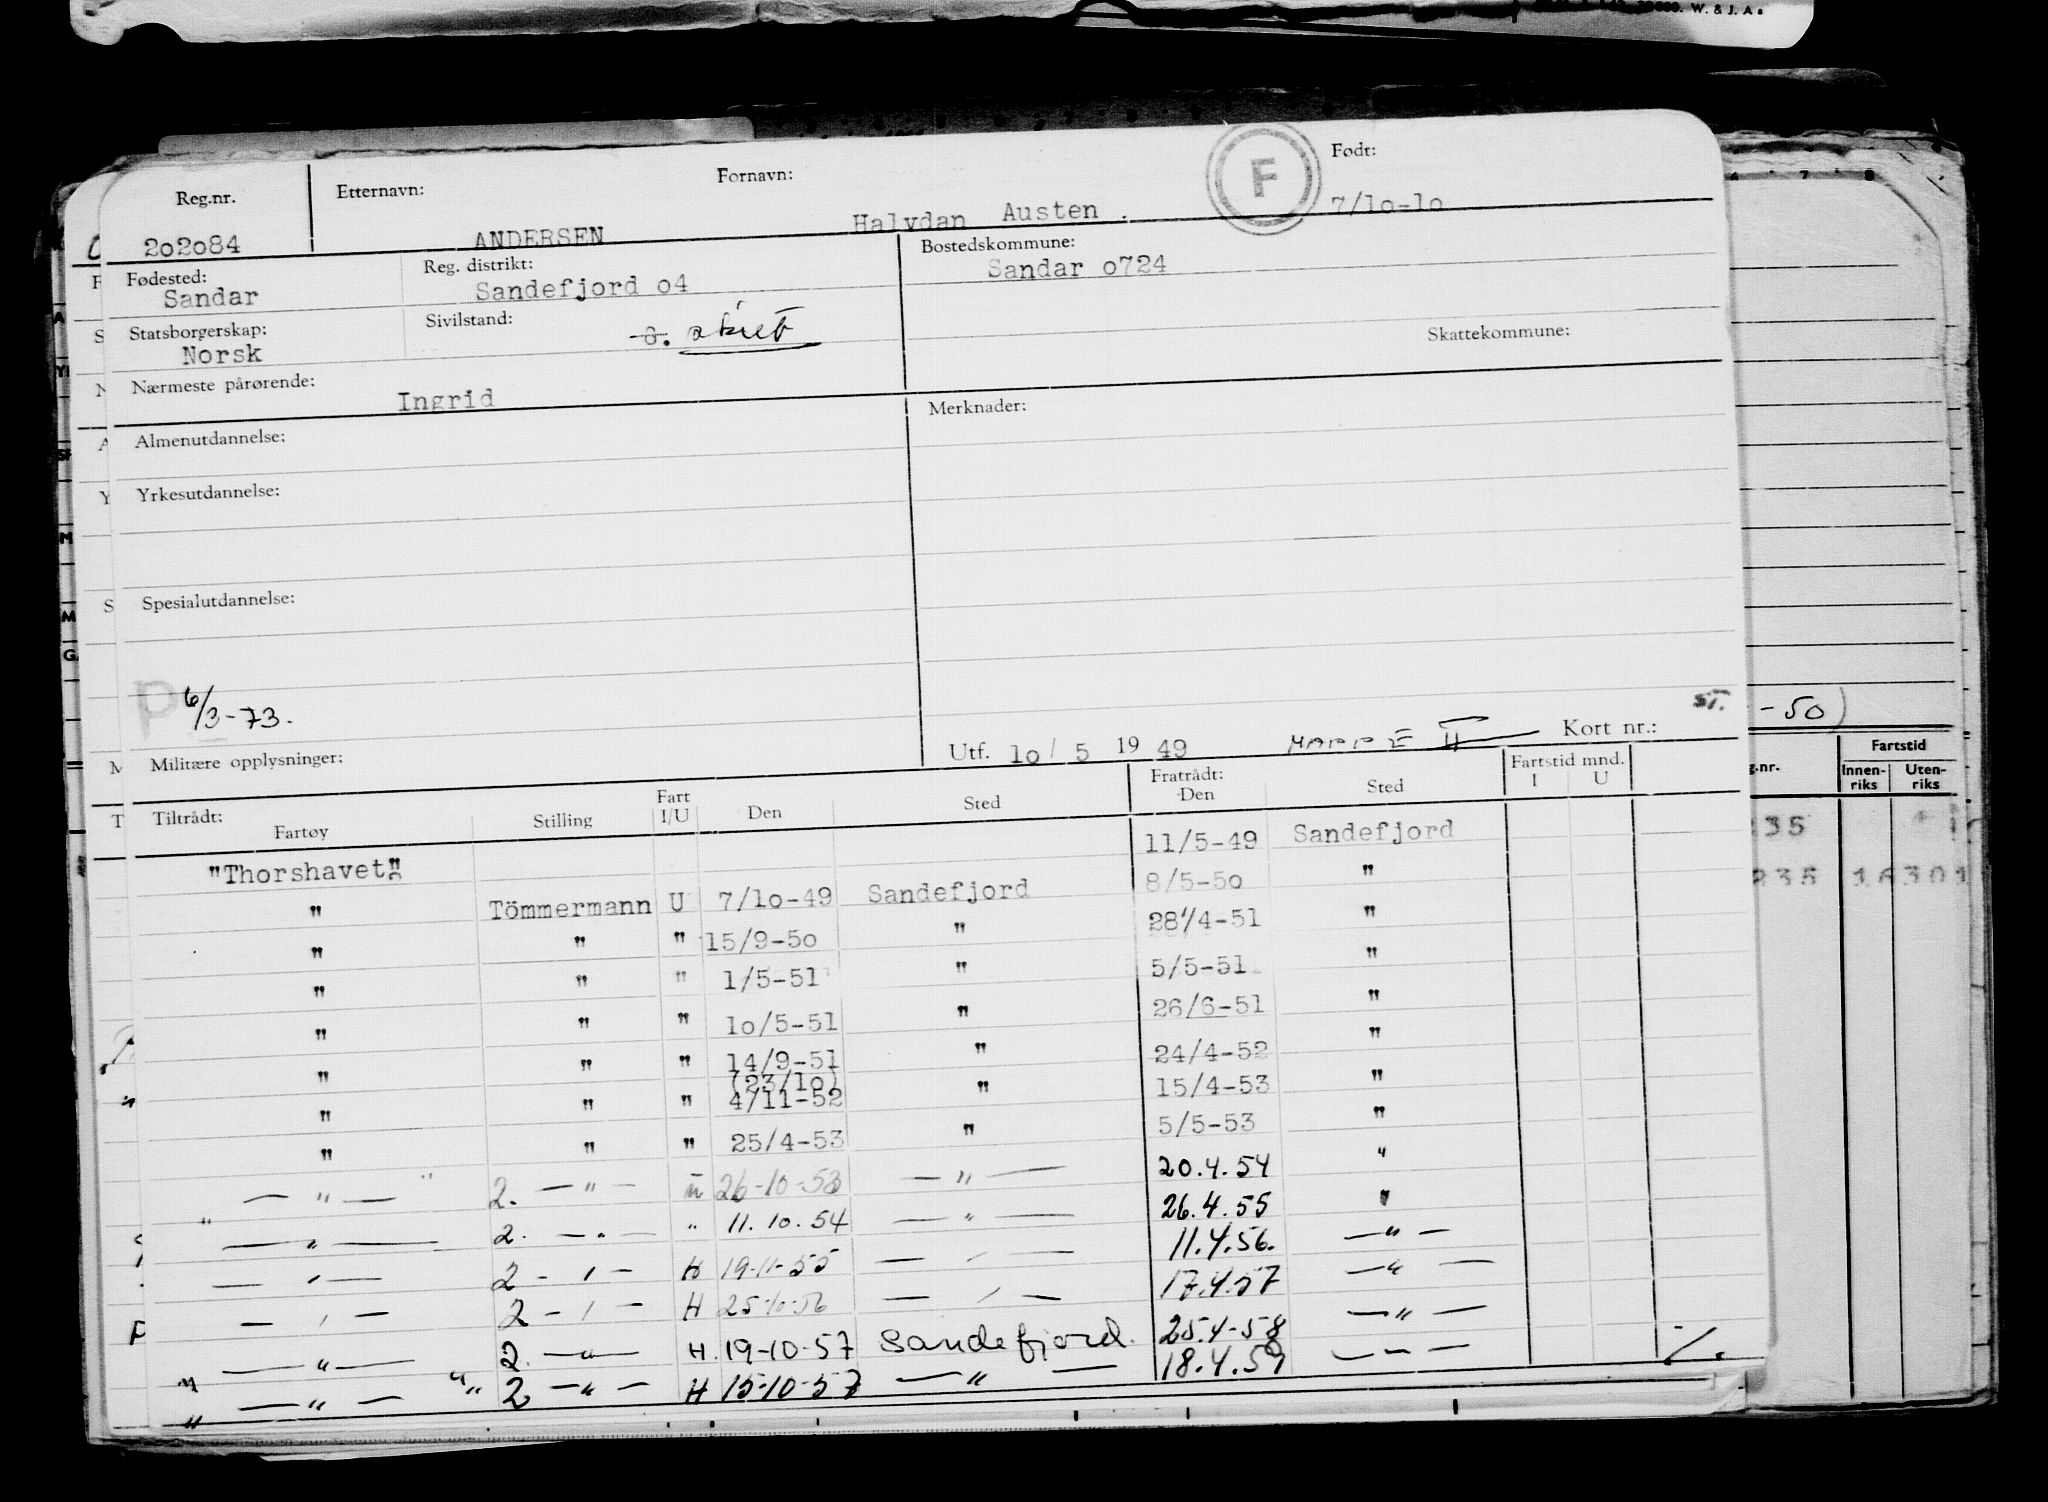 W. & J. A.
Reg.nr. Etternavn: Fornavn: F Født:
202084 ANDERSEN Halvdan Austen . 7/10-10
Fødested: Reg. distrikt: Bostedskommune:
Sandar Sandefjord 04 Sandar 0724
Statsborgerskap: Sivilstand: Skattekommune:
Norsk
Nærmeste pårørende: Ingrid
Merknader:
Almenutdannelse:
Yrkesutdannelse:
Spesialutdannelse:
P 6/3-73.
-50)
Militære opplysninger: Utf. 10/ 5 19 49 MAPPE II Kort nr.:
Tiltrådt: Fratrådt: Fartstid mnd.
Fartøy Stilling Fart I/U Den Sted Den Sted I U
Fartstid
Innen-riks Uten-riks
"Thorshavet" 11/5-49 Sandefjord
" Tömmermann U 7/10-49 Sandefjord 8/5-50 "
" " " 15/9-50 " 28/4-51 "
" " " 1/5-51 " 5/5-51 "
" " " 10/5-51 " 26/6-51 "
" " " 14/9-51 " 24/4-52 "
(23/10)
" " " 4/11-52 " 15/4-53 "
" " " 25/4-53 " 5/5-53 "
— " — 2. — " — " 26-10-53 — " — 20.4.54 "
— " — 2. — " — " 11.10.54 — " — 26.4.55 "
— " — 2 — " — H 19-11-55 — " — 11.4.56. — " —
— " — 2 — " — H 25-10-56 — " — 17.4.57 — " —
— " — 2. — " — H. 19-10-57 Sandefjord. 25.4-58 — " —
— " — 2 — " — H 15-10-57 — " — 18.4.59 — " —